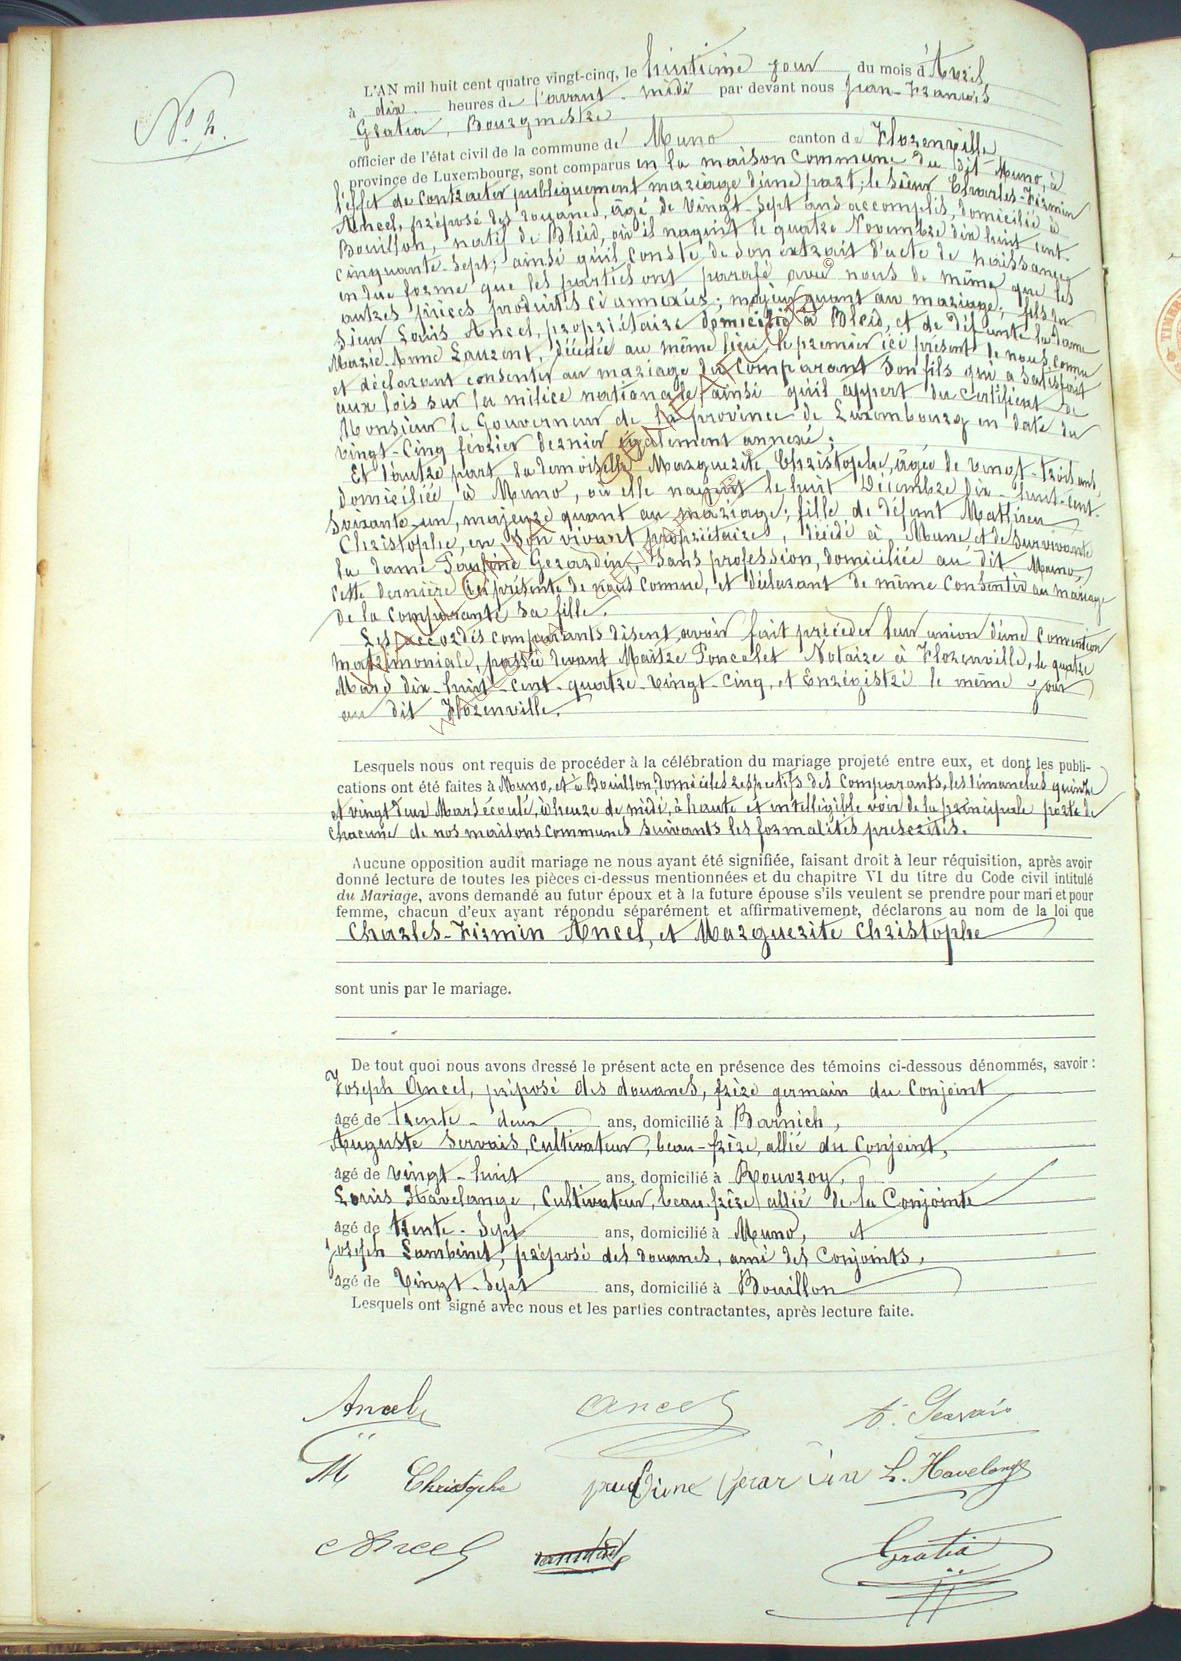 N° 2.
L'AN mil huit cent quatre vingt-cinq, le huitième jour du mois d'Avril
à dix heures de l'avant-midi par devant nous Jean-François
Gratia, Bourgmestre
officier de l'état civil de la commune de Muno canton de Florenville
province de Luxembourg, sont comparus en la maison Commune du dit Muno, à
l'effet de contracter publiquement mariage d'une part; le sieur Charles-Firmin
Ancel, préposé des douanes, âgé de vingt-sept ans accomplis, domicilié à
Bouillon, natif de Bleid, où il naquit le quatre Novembre dix huit cent-
cinquante-sept; ainsi qu'il conste de son extrait d'acte de naissance
en due forme que les parties ont parafé avec nous de même que les
autres pièces produites ci annexées; majeur quant au mariage; fils du
sieur Louis Ancel, propriétaire domicilié à Bleid, et de défunte la dame
Marie-Anne Laurent, décédée au même lieu, le premier ici présent de nous connu
et déclarant consentir au mariage du comparant son fils qui a satisfait
aux lois sur la milice nationale ainsi qu'il appert du certificat de
Monsieur le Gouverneur de la province de Luxembourg en date du
vingt-cinq février dernier également annexé;
Et d'autre part la demoiselle Marguerite Christophe, âgée de vingt-trois ans,
domiciliée à Muno, où elle naquit le huit Décembre dix-huit-cent-
soixante-un, majeure quant au mariage; fille de défunt Mathieu
Christophe, en son vivant propriétaire, décédé à Muno et de survivante
la dame Pauline Gerardin, sans profession, domiciliée au dit Muno,
cette dernière ici présente de nous connue, et déclarant de même consentir au mariage
de la comparante sa fille.
Les accordés comparants disent avoir fait précéder leur union d'une convention
matrimoniale, passée devant Maître Poncelet Notaire à Florenville, le quatre
Mars dix-huit-cent-quatre-vingt-cinq, et Enrégistré le même jour
au dit Florenville.
Lesquels nous ont requis de procéder à la célébration du mariage projeté entre eux, et dont les publi-
cations ont été faites à Muno, et à Bouillon, domiciles respectifs des Comparants, les dimanches quinze
et vingt deux Mars écoulé, à heure de midi, à haute et intelligible voix de la principale porte de
chacune de nos maisons communes suivants les formalités prescrites.
Aucune opposition audit mariage ne nous ayant été signifiée, faisant droit à leur réquisition, après avoir
donné lecture de toutes les pièces ci-dessus mentionnées et du chapitre VI du titre du Code civil intitulé
du Mariage, avons demandé au futur époux et à la future épouse s'ils veulent se prendre pour mari et pour
femme, chacun d'eux ayant répondu séparément et affirmativement, déclarons au nom de la loi que
Charles-Firmin Ancel, et Marguerite Christophe
sont unis par le mariage.
De tout quoi nous avons dressé le présent acte en présence des témoins ci-dessous dénommés, savoir :
Joseph Ancel, préposé des douanes, frère germain du Conjoint
âgé de trente-deux ans, domicilié à Barnich,
Auguste Servais, Cultivateur, beau-frère, allié du Conjoint,
âgé de vingt-huit ans, domicilié à Rouvroy,
Louis Havelange, Cultivateur, beau frère allié de la Conjointe
âgé de trente-sept ans, domicilié à Muno, et
Joseph Lambinet, préposé des douanes, ami des Conjoints,
âgé de vingt-sept ans, domicilié à Bouillon
Lesquels ont signé avec nous et les parties contractantes, après lecture faite.
Ancel Ancel A. Servais
M Christophe pauline Gerardin L. Havelange
Ancel Gratia